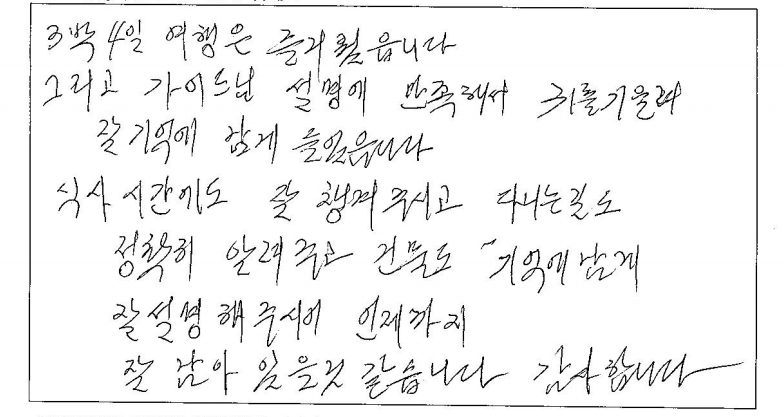 3박 4일 여행은 즐거웠읍니다
그리고 가이드님 설명에 만족해서 귀를기울려
잘 기억에 남게 들었읍니다
식사 시간에도 잘 챙겨주시고 다니는길도
정확히 알려주고 건물도 기억에남게
잘 설명해주시어 언제까지
잘 남아 있을것 같습니다 감사합니다